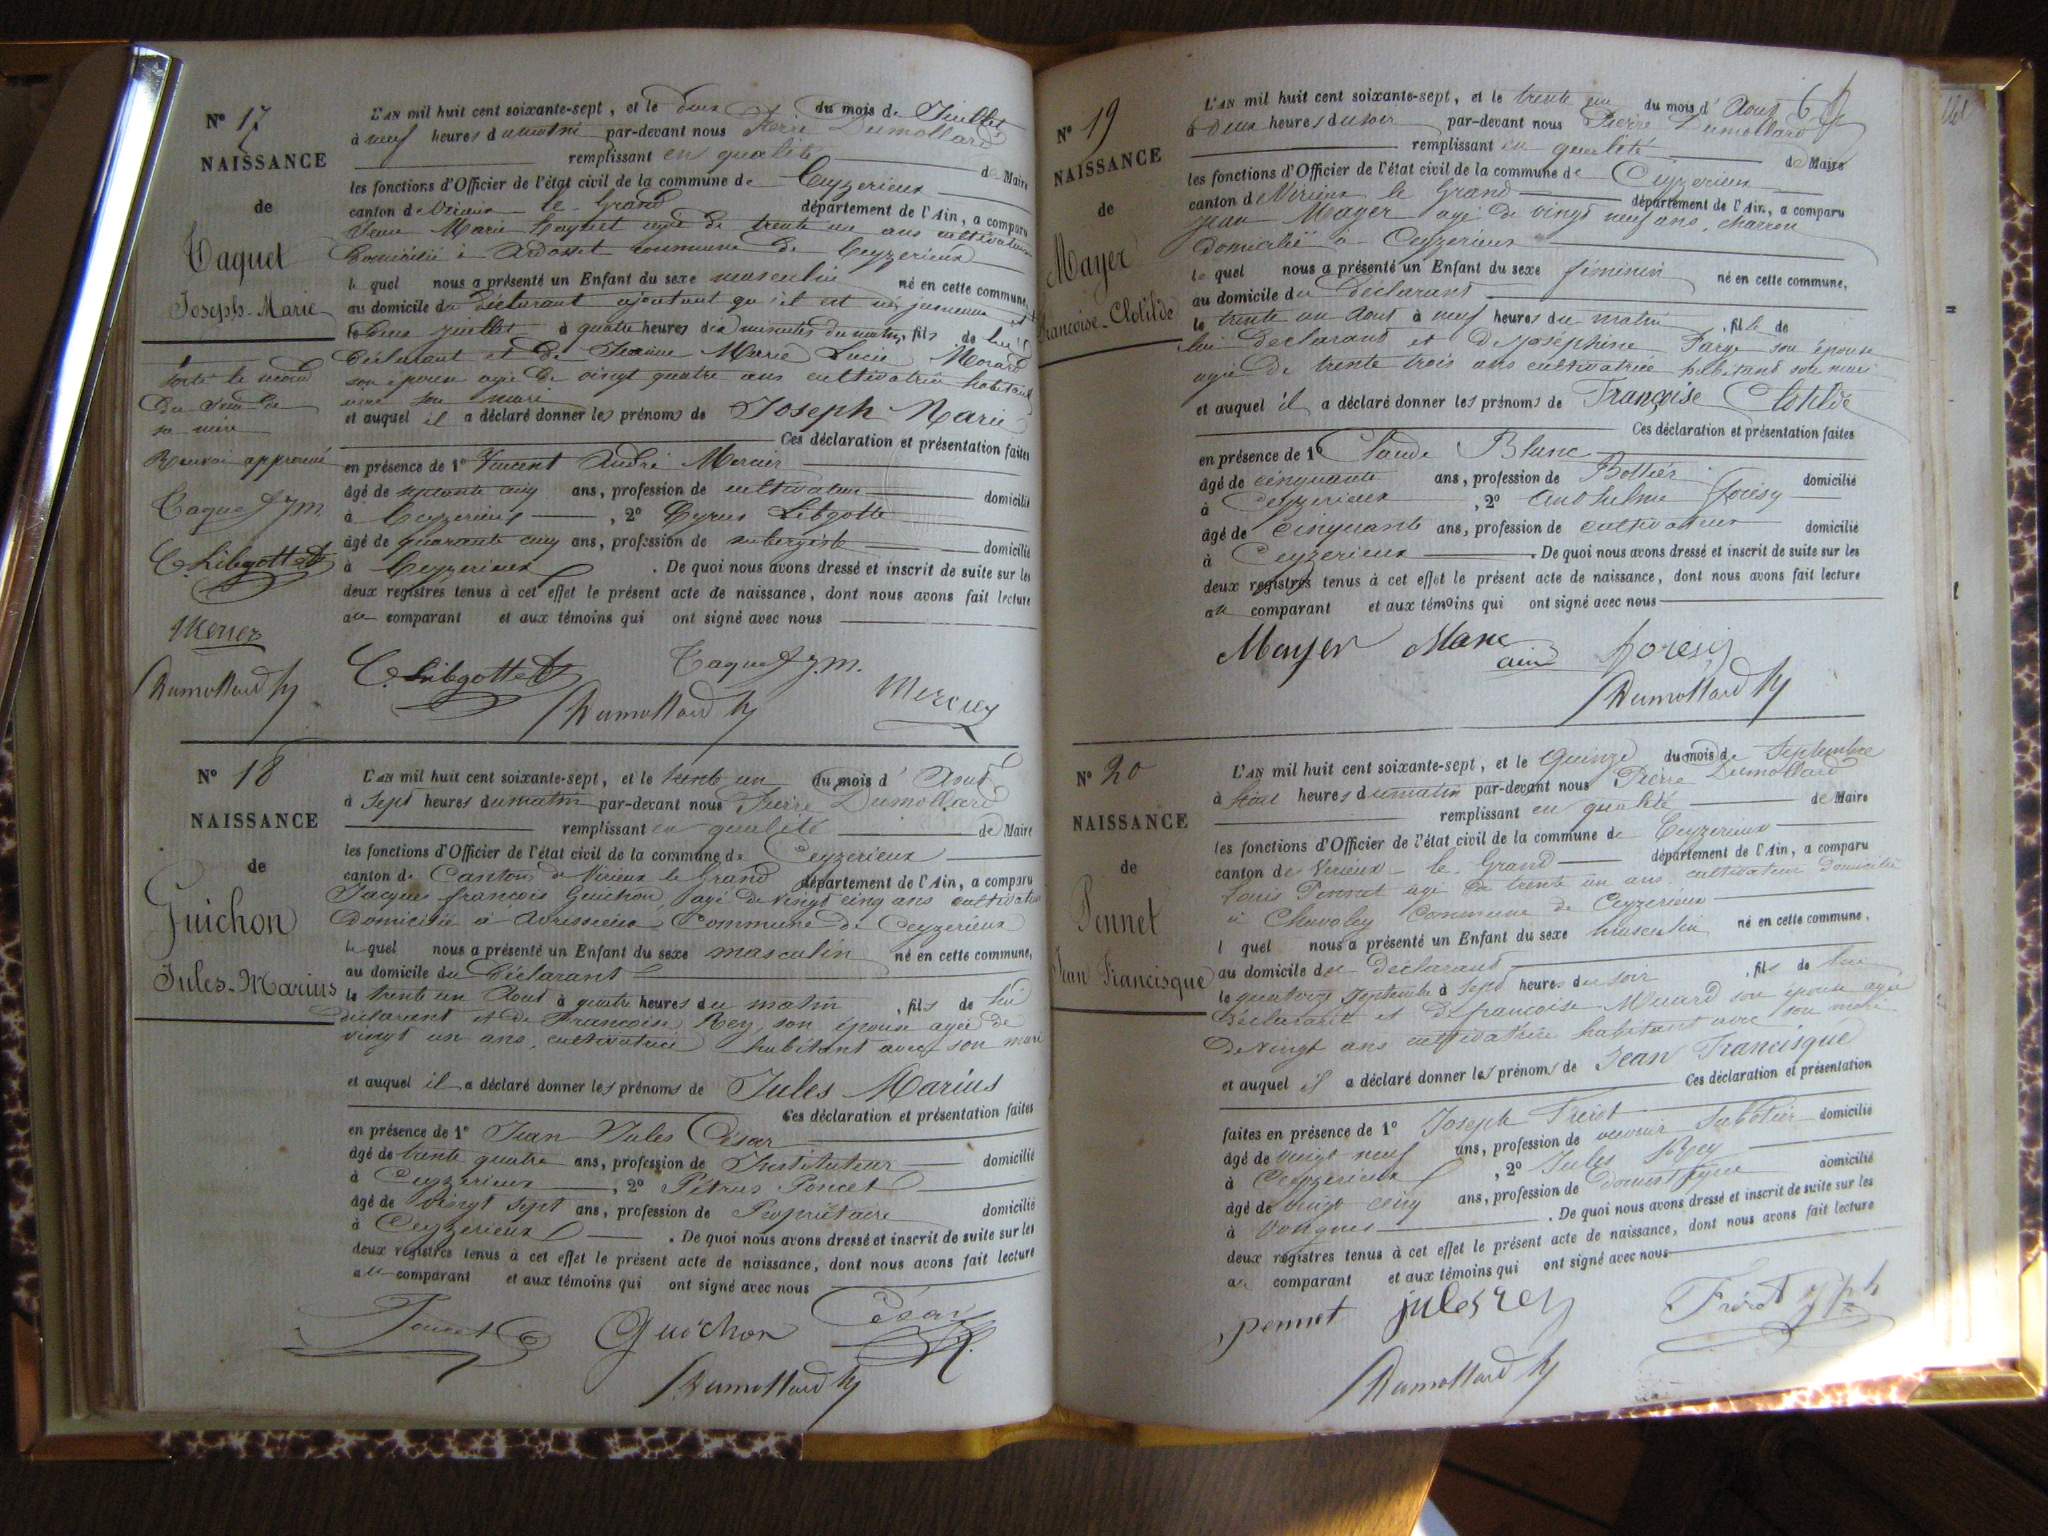 N° 17
NAISSANCE
de
Taquet
Joseph-Marie
du nom de
sa mère
Renvoi approuvé
Taquet J M
C. Libgott
Mercier
Dumollard Py
L'AN mil huit cent soixante-sept, et le deux du mois de Juillet
à neuf heures du matin par-devant nous Pierre Dumollard
remplissant en qualité de Maire
les fonctions d'Officier de l'état civil de la commune de Ceyzerieux
canton de Virieux le Grand département de l'Ain, a comparu
Jean Marie Taquet agé de trente un ans cultivateur
Domicilié à Ardosset commune de Ceyzerieux
le quel nous a présenté un Enfant du sexe masculin né en cette commune,
au domicile du déclarant ajoutant qu'il est né
le deux Juillet à quatre heures dix minutes du matin, fils de lui
déclarant et de Jeanne Marie Lucie Morard
son épouse agée de vingt quatre ans cultivatrice habitant
avec son mari
et auquel il a déclaré donner les prénoms de Joseph Marie
Ces déclaration et présentation faites
en présence de 1° Vincent André Mercier
âgé de septante cinq ans, profession de cultivateur domicilié
à Ceyzerieux, 2° Cyrus Libgotte
âgé de quarante cinq ans, profession de aubergiste domicilié
à Ceyzerieux. De quoi nous avons dressé et inscrit de suite sur les
deux registres tenus à cet effet le présent acte de naissance, dont nous avons fait lecture
au comparant et aux témoins qui ont signé avec nous
C. Libgott Taquet J. M.
Dumollard Py Mercier
N° 18
NAISSANCE
de
Guichon
Jules-Marius
L'AN mil huit cent soixante-sept, et le trente un du mois d' Aout
à sept heures du matin par-devant nous Pierre Dumollard
remplissant en qualité de Maire
les fonctions d'Officier de l'état civil de la commune de Ceyzerieux
canton de Canton de Virieux le Grand département de l'Ain, a comparu
Jacques françois Guichon, agé de vingt cinq ans cultivateur
Domicilié à Avrissieu Commune de Ceyzerieux
le quel nous a présenté un Enfant du sexe masculin né en cette commune,
au domicile du Déclarant
le trente un Aout à quatre heures du matin, fils de lui
déclarant et de Françoise Rey, son épouse agée de
vingt un ans, cultivatrice habitant avec son mari
et auquel il a déclaré donner les prénoms de Jules Marius
Ces déclaration et présentation faites
en présence de 1° Jean Jules César
âgé de trente quatre ans, profession de Instituteur domicilié
à Ceyzerieux, 2° Pétrus Poncet
âgé de vingt sept ans, profession de Propriétaire domicilié
à Ceyzerieux. De quoi nous avons dressé et inscrit de suite sur les
deux registres tenus à cet effet le présent acte de naissance, dont nous avons fait lecture
au comparant et aux témoins qui ont signé avec nous
Poncet Guichon César
Dumollard Py
N° 19
NAISSANCE
de
Mayer
Françoise-Clotilde
L'AN mil huit cent soixante-sept, et le trente un du mois d' Aout 6
à Deux heures du soir par-devant nous Pierre Dumollard
remplissant en qualité de Maire
les fonctions d'Officier de l'état civil de la commune de Ceyzerieux
canton de Virieux le Grand département de l'Ain, a comparu
Jean Mayer agé de vingt neuf ans, charron
Domicilié à Ceyzerieux
le quel nous a présenté un Enfant du sexe féminin né en cette commune,
au domicile du Déclarant
le trente un Aout à neuf heures du matin, fille de
lui déclarant et de Joséphine Farge son épouse
agée de trente trois ans cultivatrice habitant son mari
et auquel il a déclaré donner les prénoms de Françoise Clotilde
Ces déclaration et présentation faites
en présence de 1° Claude Blanc
âgé de cinquante ans, profession de Bottier domicilié
à Ceyzerieux, 2° Anthelme
âgé de Cinquante ans, profession de cultivateur domicilié
à Ceyzerieux. De quoi nous avons dressé et inscrit de suite sur les
deux registres tenus à cet effet le présent acte de naissance, dont nous avons fait lecture
au comparant et aux témoins qui ont signé avec nous
Mayer Blanc
Dumollard Py
N° 20
NAISSANCE
de
Pennet
Jean Francisque
L'AN mil huit cent soixante-sept, et le Quinze du mois de Septembre
à heures du matin par-devant nous Pierre Dumollard
remplissant en qualité de Maire
les fonctions d'Officier de l'état civil de la commune de Ceyzerieux
canton de Virieux le Grand département de l'Ain, a comparu
Louis Pennet agé de trente un ans cultivateur domicilié
à Chavoley Commune de Ceyzerieux
l quel nous a présenté un Enfant du sexe masculin né en cette commune,
au domicile du Déclarant
le quatorze septembre à sept heures du soir, fils de lui
Déclarant et de françoise Muard son épouse agée
de vingt ans cultivatrice habitant avec son mari
et auquel il a déclaré donner les prénoms de Jean Francisque
Ces déclaration et présentation
faites en présence de 1° Joseph Freret
âgé de vingt neuf ans, profession de ouvrier sabotier domicilié
à Ceyzerieux, 2° Jules Rey
âgé de vingt cinq ans, profession de Domestique domicilié
à Vongnes. De quoi nous avons dressé et inscrit de suite sur les
deux registres tenus à cet effet le présent acte de naissance, dont nous avons fait lecture
au comparant et aux témoins qui ont signé avec nous
pennet jules rey
Dumollard Py